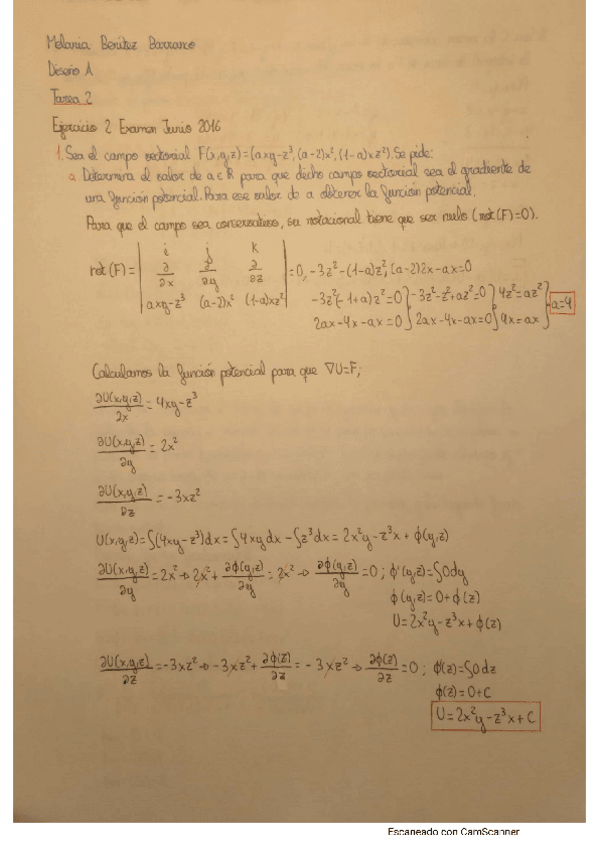 Melania Benítez Barranco
Diseño A
Tarea 2
Ejercicio 2 Examen Junio 2016
1. Sea el campo vectorial F(x,y,z)=(axy-z³, (a-2)x², (1-a)xz²). Se pide:
a Determina el valor de a ∈ R para que dicho campo vectorial sea el gradiente de
una función potencial. Para ese valor de a obtener la función potencial.
Para que el campo sea conservativo, su rotacional tiene que ser nulo (rot(F)=0).
rot(F)= | i j k ; ∂/∂x ∂/∂y ∂/∂z ; axy-z³ (a-2)x² (1-a)xz² | =0, -3z²-(1-a)z²; (a-2)2x-ax=0
-3z²(-1+a)z²=0 } -3z²-z²+az²=0 } 4z²=az² } a=4
2ax-4x-ax=0 } 2ax-4x-ax=0 } 4x=ax
Calculamos la función potencial para que ∇U=F;
∂U(x,y,z)/2x = 4xy-z³
∂U(x,y,z)/∂y = 2x²
∂U(x,y,z)/∂z = -3xz²
U(x,y,z)=∫(4xy-z³)dx=∫4xydx-∫z³dx=2x²y-z³x+ϕ(y,z)
∂U(x,y,z)/∂y = 2x² → 2x²+∂ϕ(y,z)/∂y = 2x² → ∂ϕ(y,z)/∂y = 0; ϕ'(y,z)=∫0dy
ϕ(y,z)=0+ϕ(z)
U=2x²y-z³x+ϕ(z)
∂U(x,y,z)/∂z = -3xz² → -3xz²+∂ϕ(z)/∂z = -3xz² → ∂ϕ(z)/∂z = 0; ϕ(z)=∫0dz
ϕ(z)=0+C
U=2x²y-z³x+C
Escaneado con CamScanner